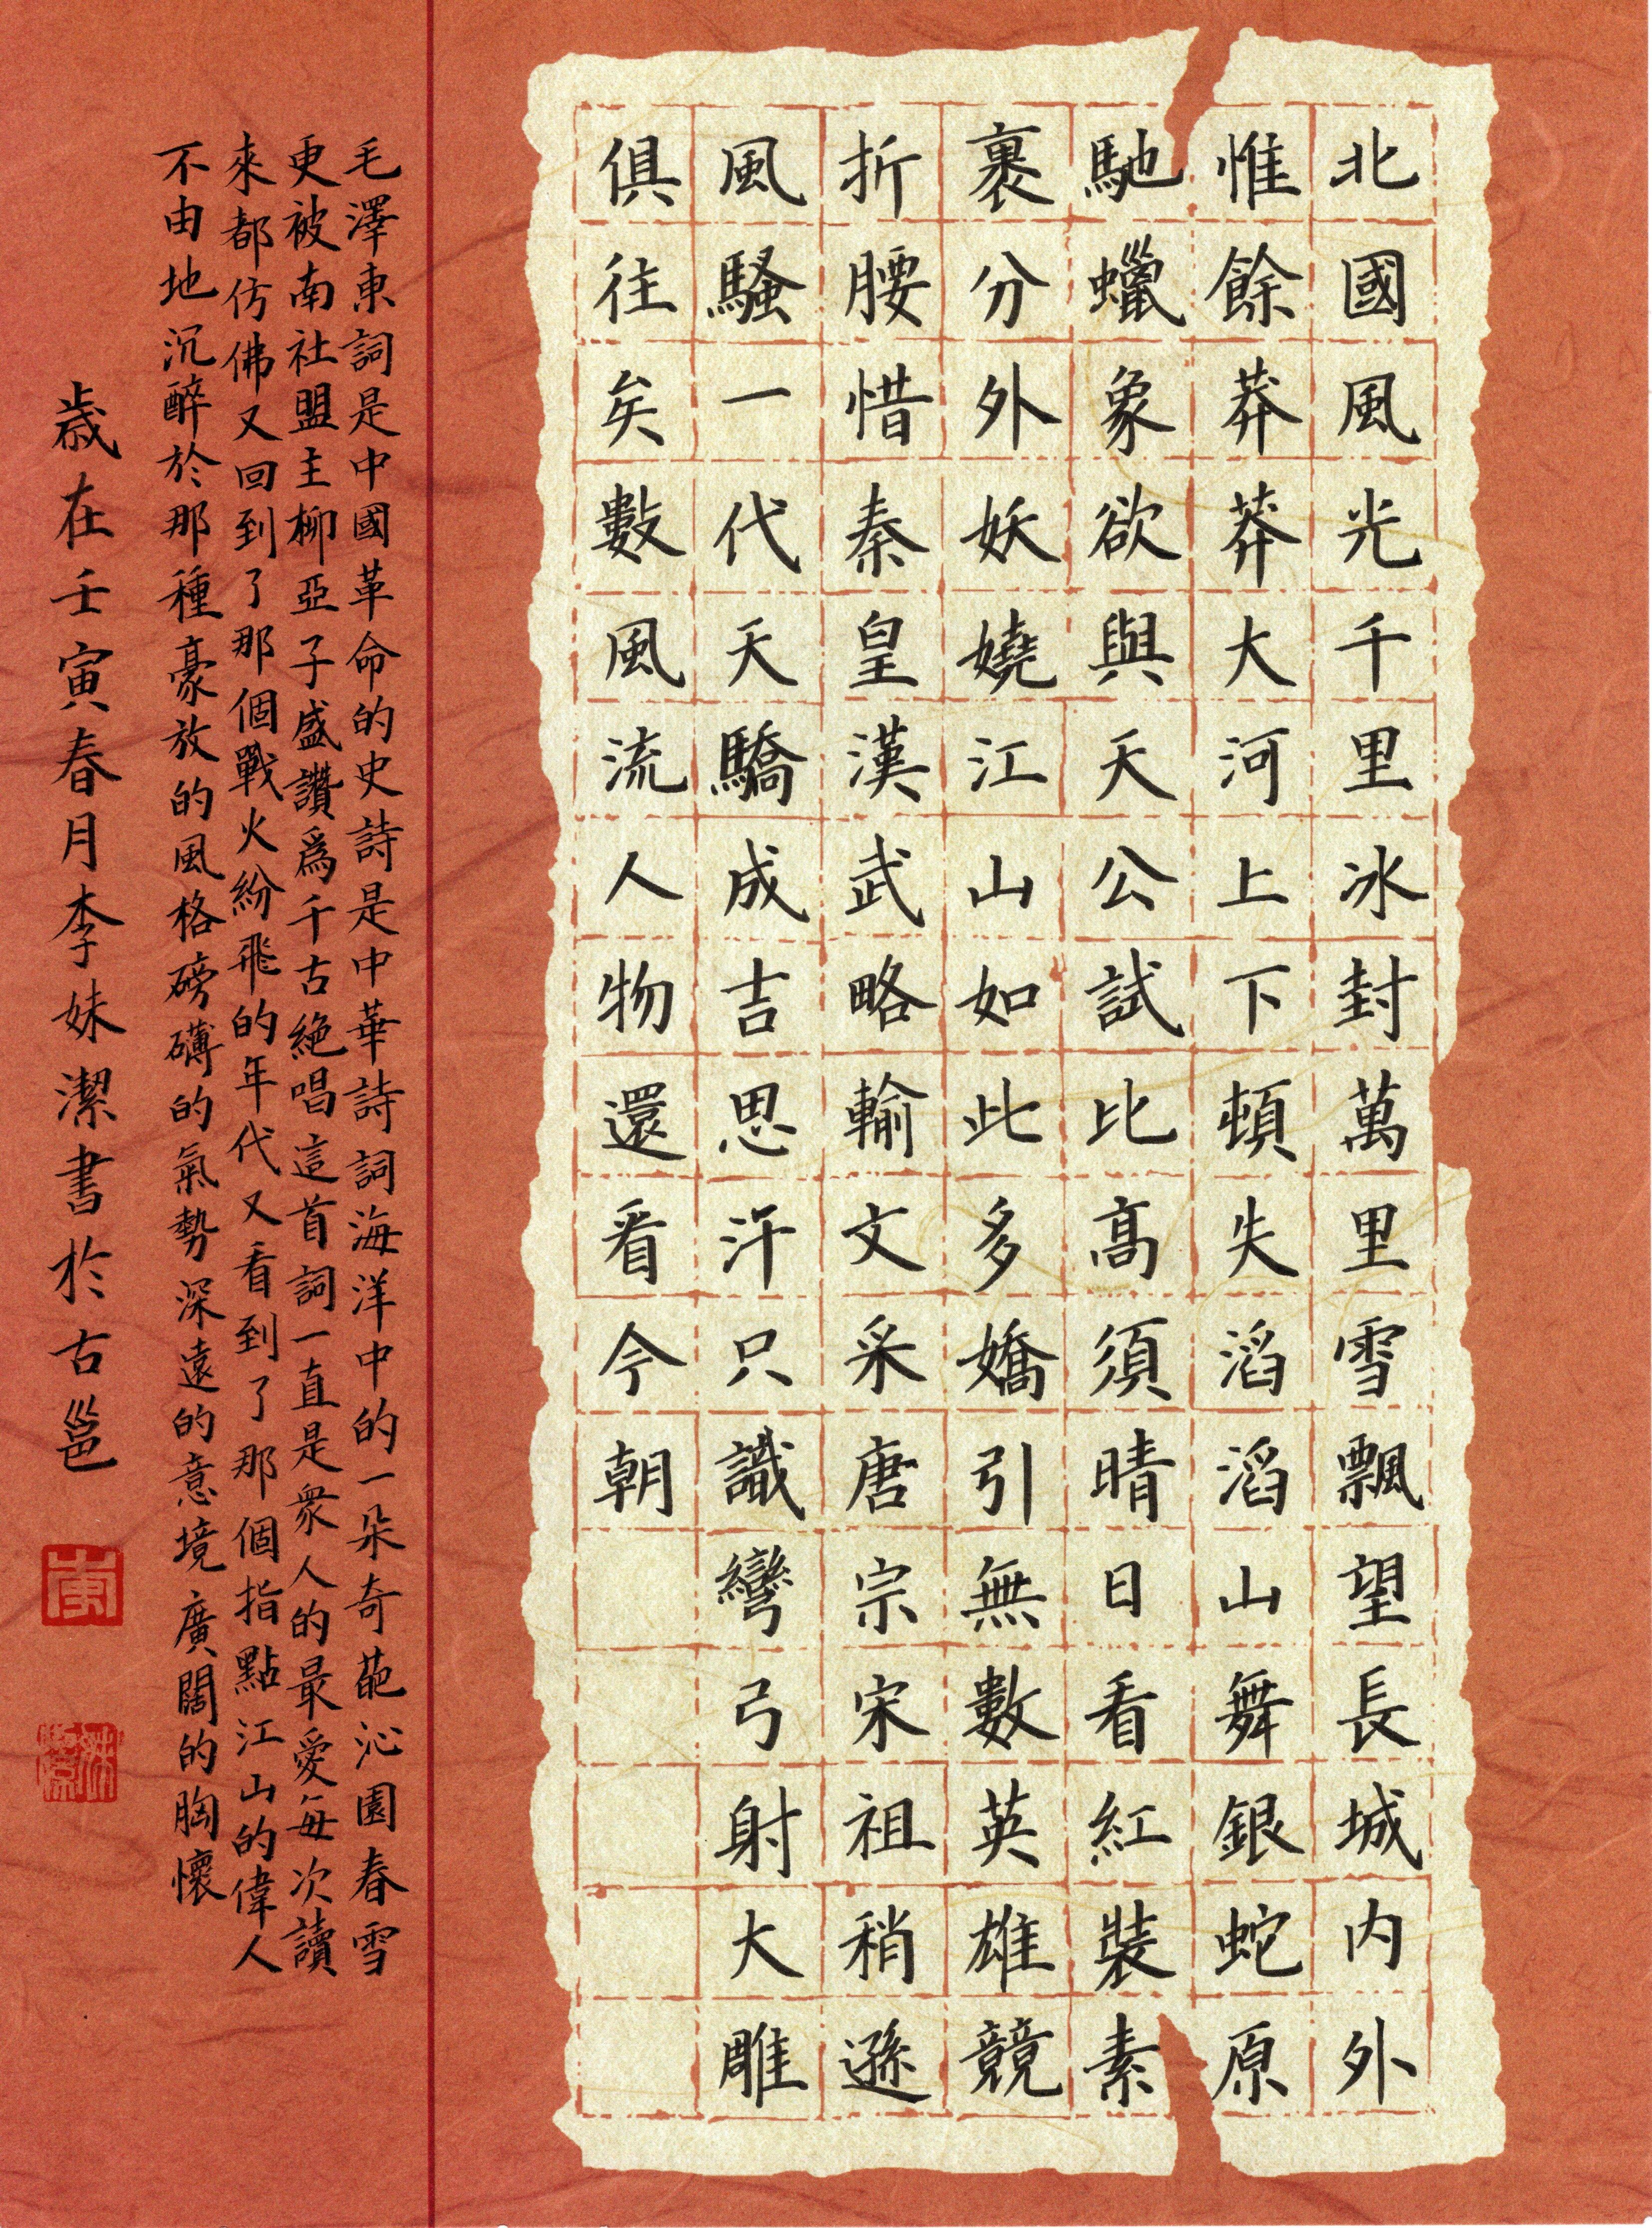 北國風光千里冰封萬里雪飄望長城内外
惟餘莽莽大河上下頓失滔滔山舞銀蛇原
馳蠟象欲與天公試比高須晴日看紅裝素
裹分外妖嬈江山如此多嬌引無數英雄競
折腰惜秦皇漢武略輸文采唐宗宋祖稍遜
風騷一代天驕成吉思汗只識彎弓射大雕
俱往矣數風流人物還看今朝
毛澤東詞是中國革命的史詩是中華詩詞海洋中的一朵奇葩沁園春雪
更被南社盟主柳亞子盛讚爲千古絶唱這首詞一直是衆人的最愛每次讀
來都仿佛又回到了那個戰火紛飛的年代又看到了那個指點江山的偉人
不由地沉醉於那種豪放的風格磅礴的氣勢深遠的意境廣闊的胸懷
歲在壬寅春月李妹潔書於古邕